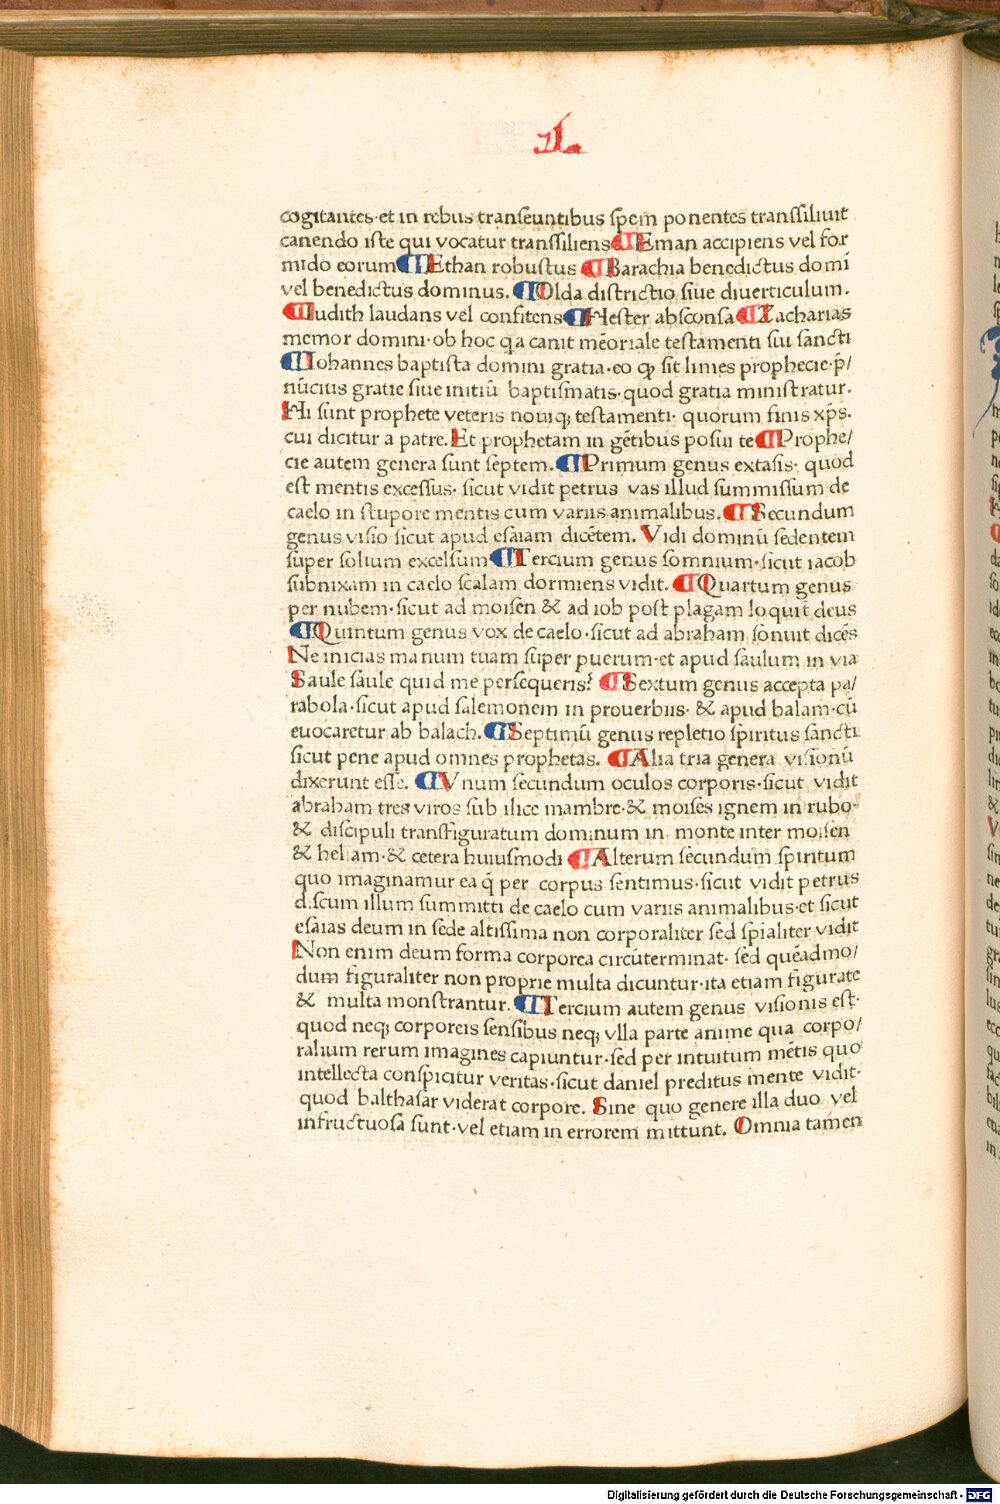 cogitantes·et in rebus transeuntibus spem ponentes transsiliuit
canendo iste qui vocatur transsiliens ¶ Eman accipiens vel for
mido eorum ¶ Ethan robustus ¶ Barachia benedictus domī
vel benedictus dominus. ¶ Olda districtio siue diuerticulum.
¶ Iudith laudans vel confitens ¶ Hester absconsa ¶ Zacharias
memor domini·ob hoc qa canit mēoriale testamenti sui sancti
¶ Iohannes baptista domini gratia·eo ꝙ sit limes prophecie·p̄/
nūcius gratie siue initiū baptismatis·quod gratia ministratur.
Hi sunt prophete veteris nouiqꝫ testamenti· quorum finis xp̄s.
cui dicitur a patre. Et prophetam in gētibus posui te ¶ Prophe/
cie autem genera sunt septem. ¶ Primum genus extasis· quod
est mentis excessus· sicut vidit petrus vas illud summissum de
caelo in stupore mentis cum variis animalibus. ¶ Secundum
genus visio sicut apud esaiam dicētem. Vidi dominū sedentem
super solium excelsum ¶ Tercium genus somnium·sicut iacob
subnixam in caelo scalam dormiens vidit. ¶ Quartum genus
per nubem·sicut ad moisen & ad iob post plagam loquit deus
¶ Quintum genus vox de caelo·sicut ad abraham sonuit dicēs
Ne inicias manum tuam super puerum·et apud saulum in via
Saule saule quid me persequeris? ¶ Sextum genus accepta pa/
rabola·sicut apud salemonem in prouerbiis· & apud balam·cū
euocaretur ab balach. ¶ Septimū genus repletio spiritus sancti
sicut pene apud omnes prophetas. ¶ Alia tria genera visionū
dixerunt esse. ¶ Vnum secundum oculos corporis·sicut vidit
abraham tres viros sub ilice mambre·& moises ignem in rubo·
& discipuli transfiguratum dominum in monte inter moisen
& heliam·& cetera huiusmodi ¶ Alterum secundum spiritum
quo imaginamur ea q̄ per corpus sentimus·sicut vidit petrus
discum illum summitti de caelo cum variis animalibus·et sicut
esaias deum in sede altissima non corporaliter sed spialiter vidit
Non enim deum forma corporea circūterminat· sed quēadmo/
dum figuraliter non proprie multa dicuntur·ita etiam figurate
& multa monstrantur. ¶ Tercium autem genus visionis est·
quod neqꝫ corporeis sensibus neqꝫ vlla parte anime qua corpo/
ralium rerum imagines capiuntur·sed per intuitum mētis quo
intellecta conspicitur veritas·sicut daniel preditus mente vidit·
quod balthasar viderat corpore. Sine quo genere illa duo vel
infructuosa sunt·vel etiam in errorem mittunt. Omnia tamen
Digitalisierung gefördert durch die Deutsche Forschungsgemeinschaft - DFG